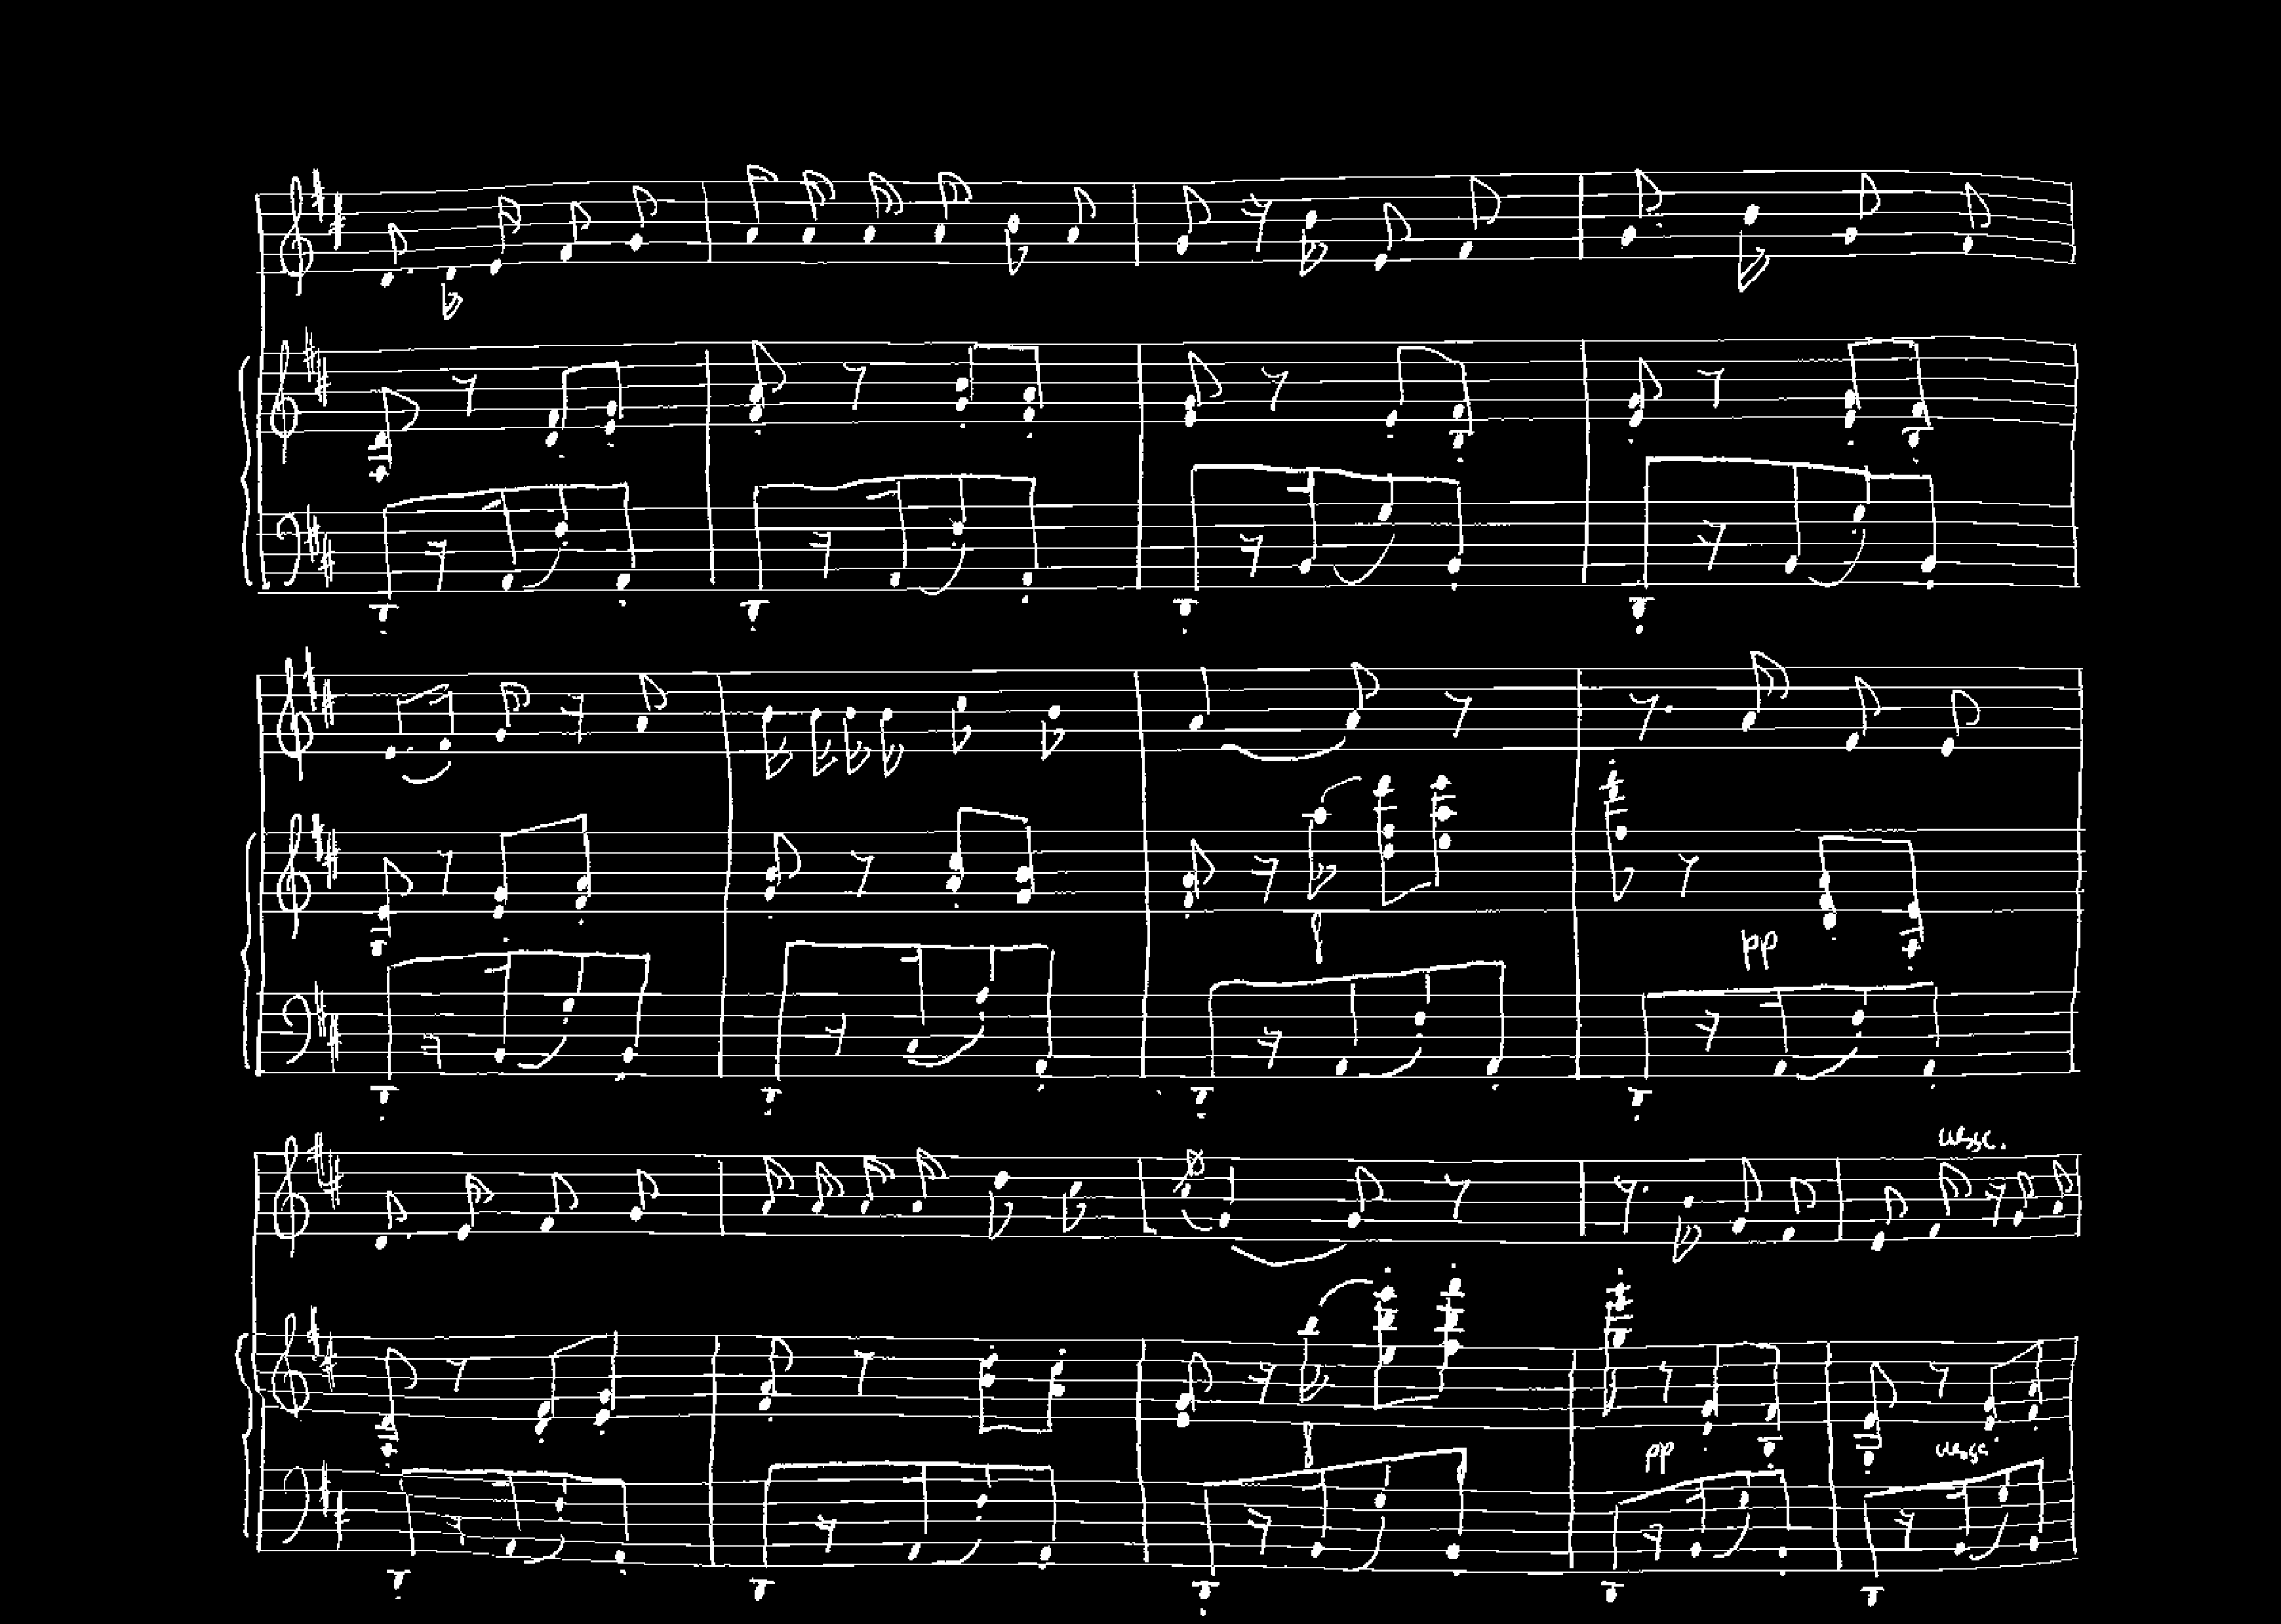 pp
cresc.
pp
cresc.